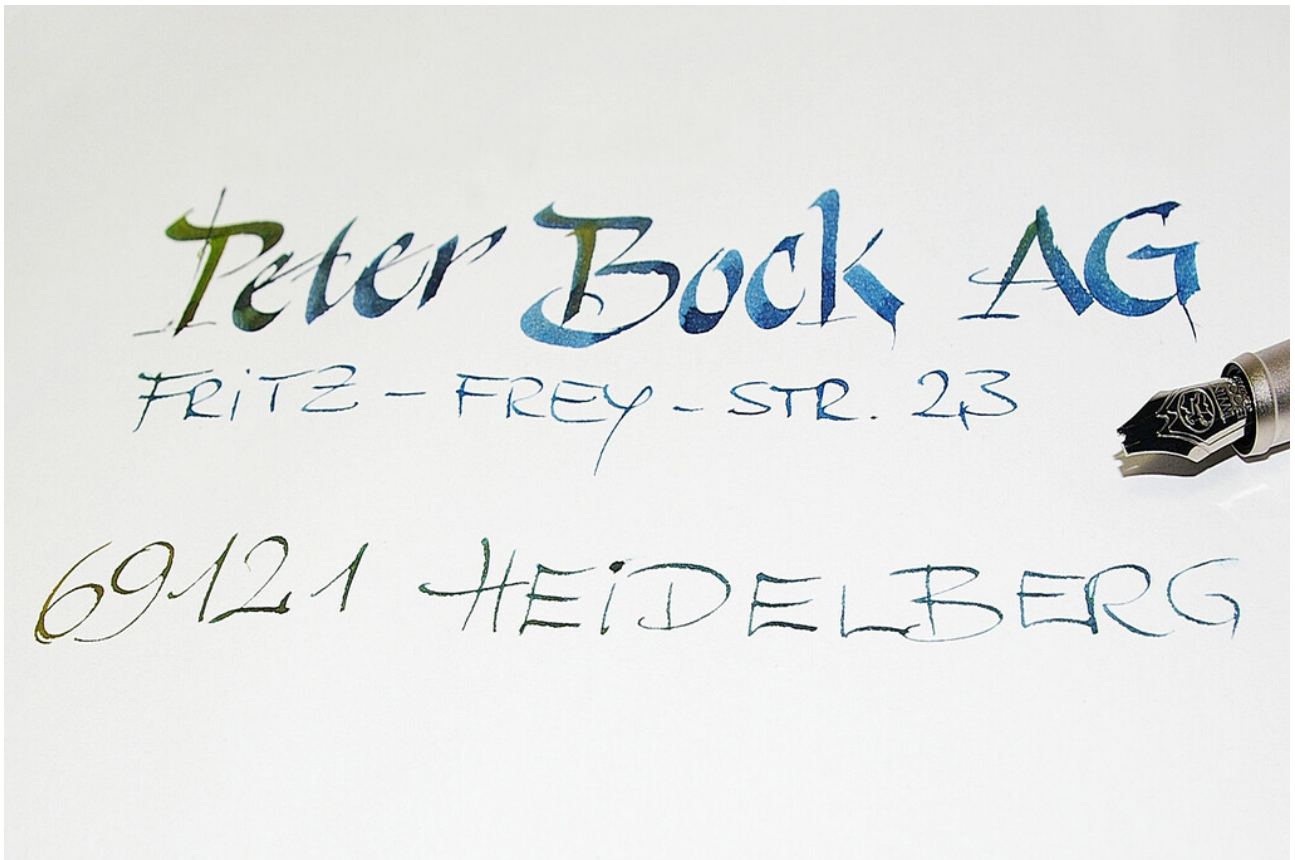 Peter Bock AG
FRiTZ - FREY - STR. 23
69121 HEiDELBERG